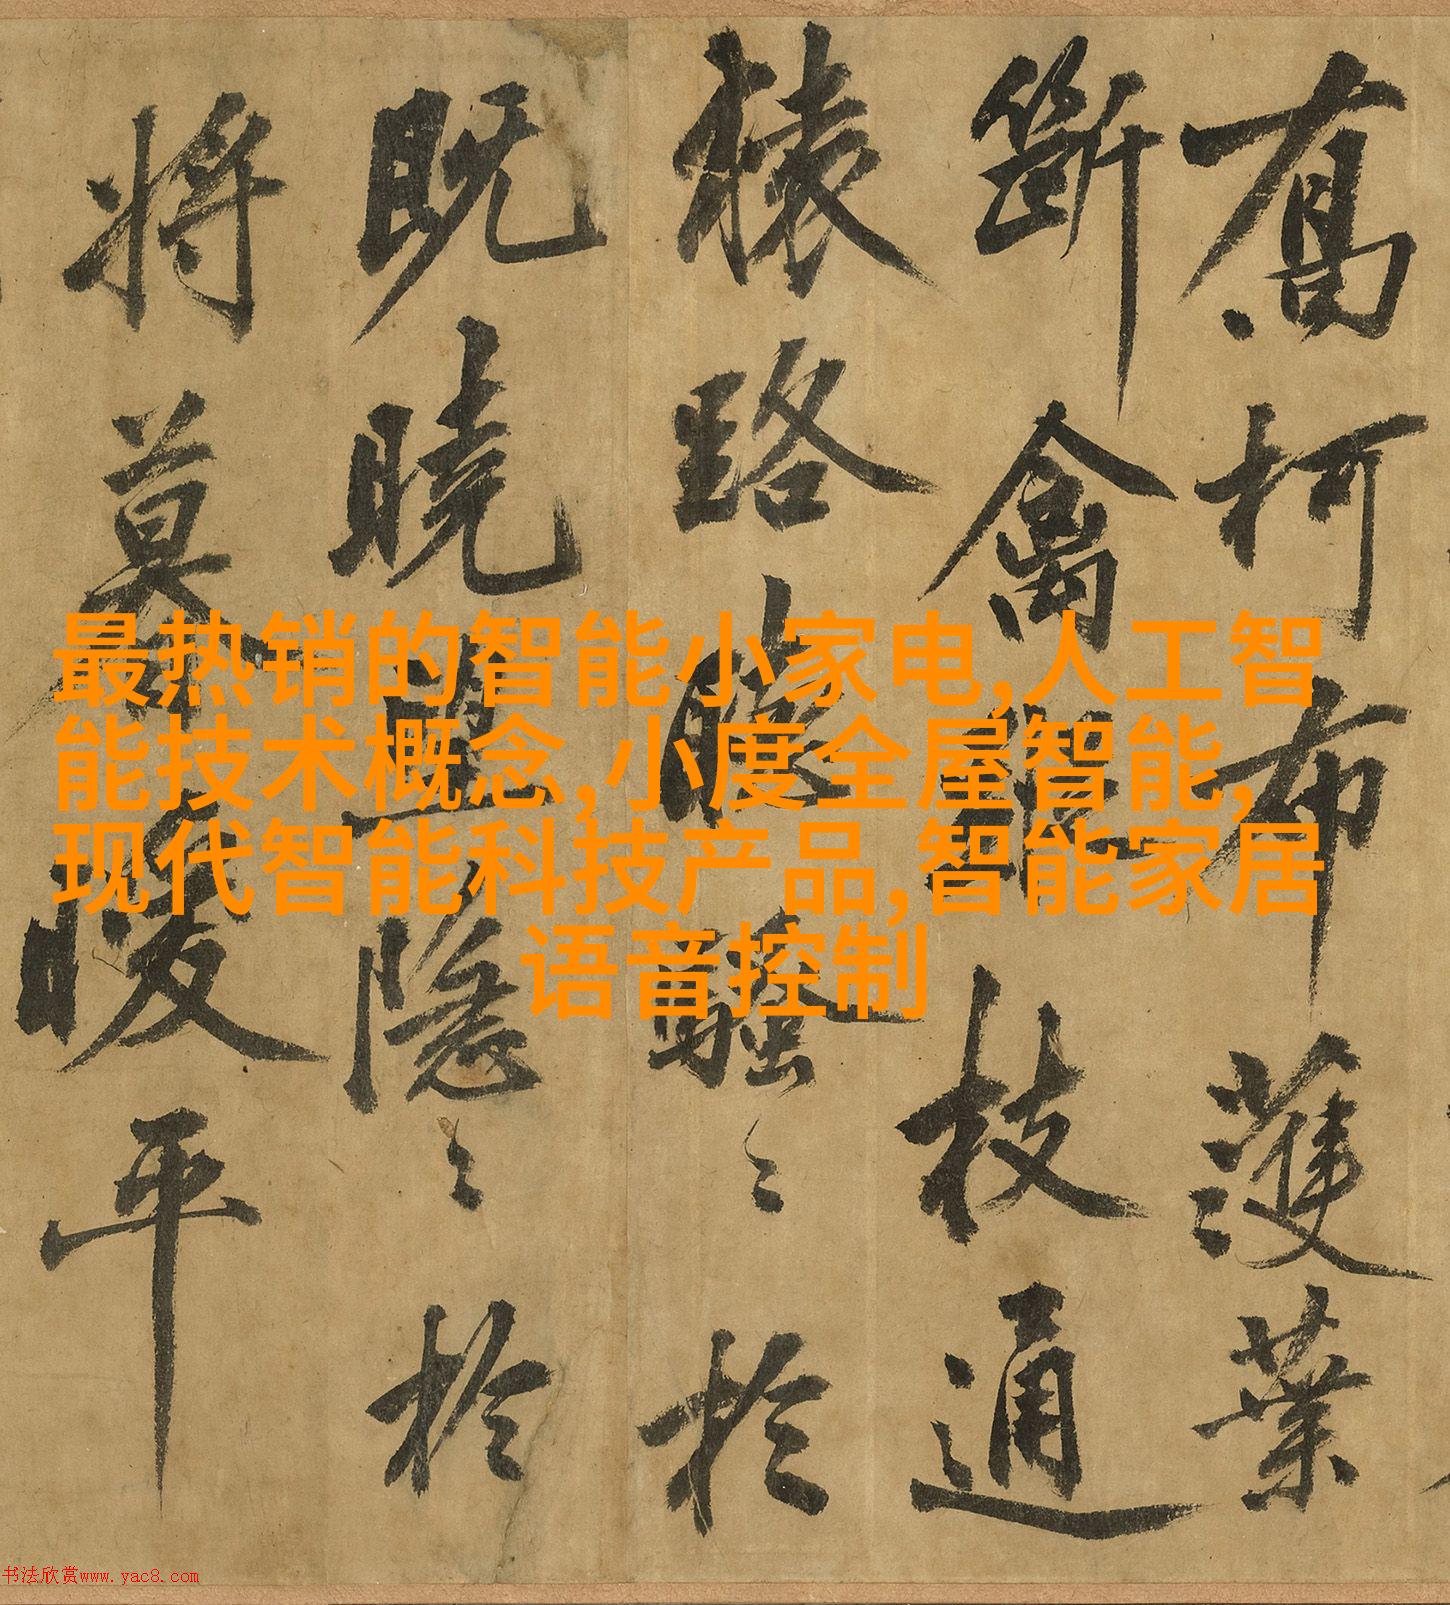 最热销的智能小家电,人工智
能技术概念,小度全屋智能,
现代智能科技产品,智能家居
语音控制
柯布濩葉
斷禽枝通
猿路騷〻於
既曉隱〻於
將莫暖平
书法欣赏www.yac8.com